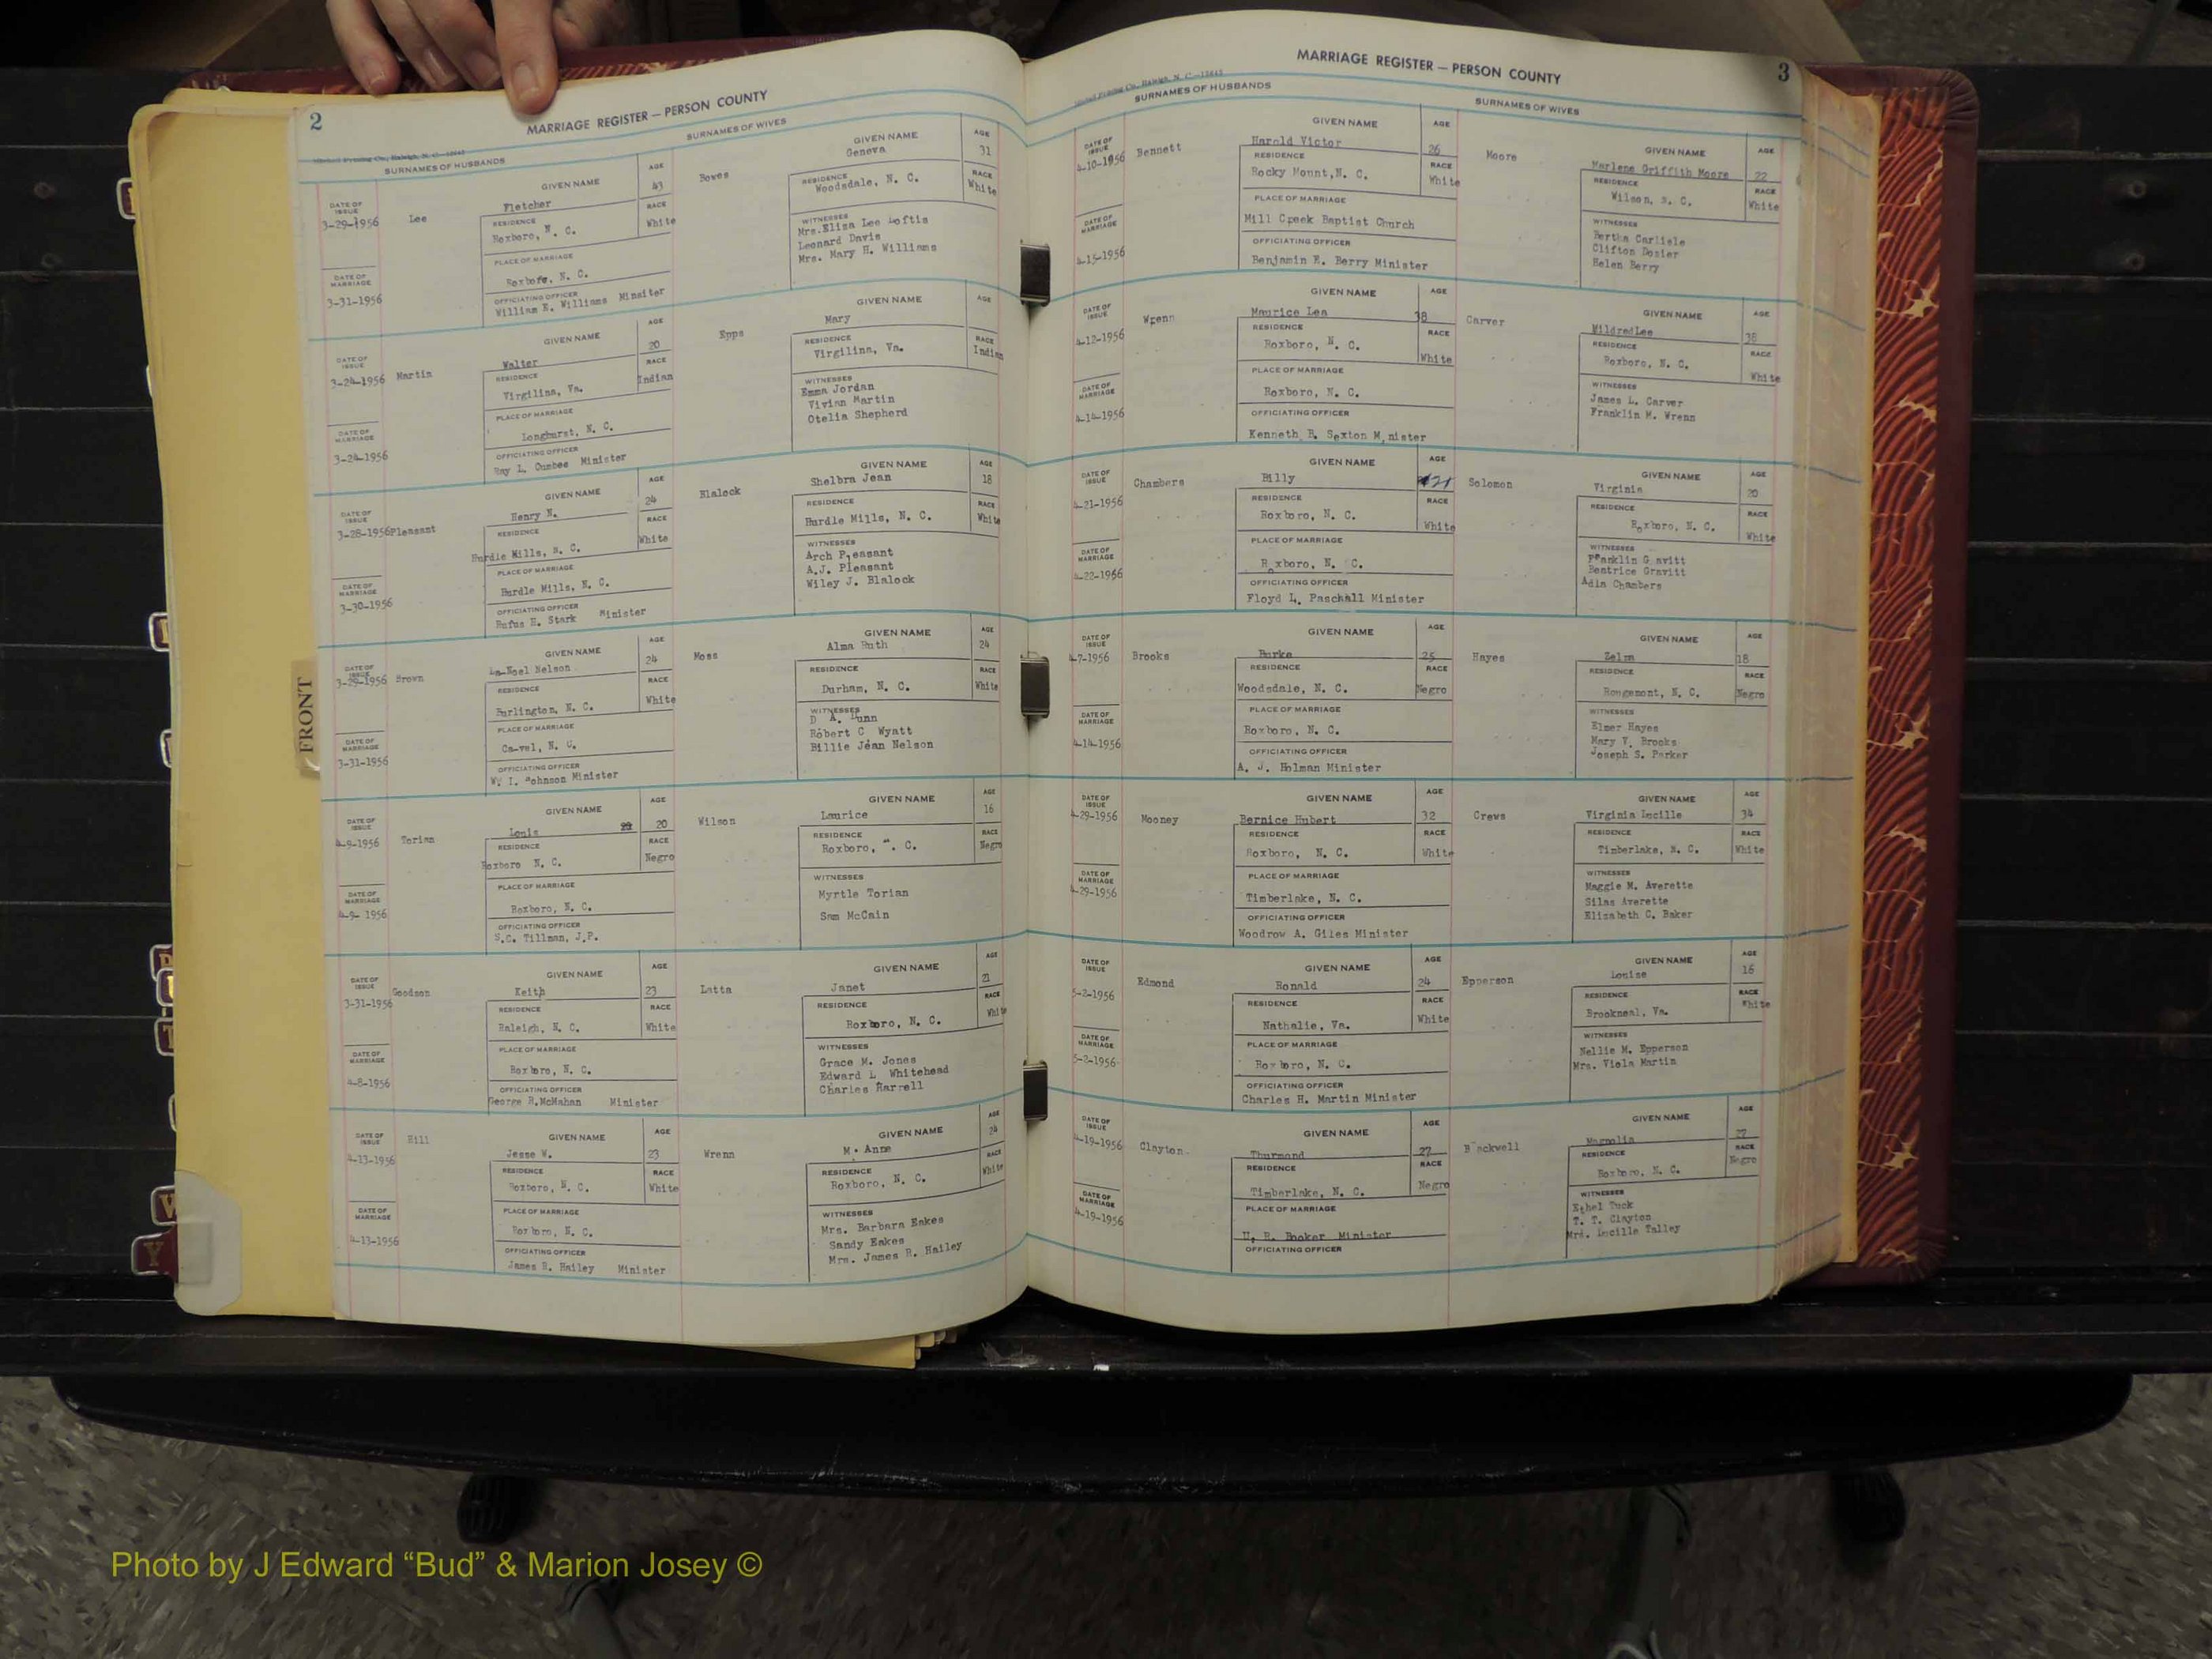 2
MARRIAGE REGISTER — PERSON COUNTY
SURNAMES OF HUSBANDS
SURNAMES OF WIVES
DATE OF ISSUE
3-29-1956
Lee
GIVEN NAME
Fletcher
AGE
43
RESIDENCE
Roxboro, N. C.
RACE
White
PLACE OF MARRIAGE
Roxboro, N. C.
DATE OF MARRIAGE
3-31-1956
OFFICIATING OFFICER
William E. Williams Minsiter
Bowes
GIVEN NAME
Geneva
AGE
31
RESIDENCE
Woodsdale, N. C.
RACE
White
WITNESSES
Mrs.Eliza Lee Loftis
Leonard Davis
Mrs. Mary H. Williams
DATE OF ISSUE
3-24-1956
Martin
GIVEN NAME
Walter
AGE
20
RESIDENCE
Virgilina, Va.
RACE
Indian
PLACE OF MARRIAGE
Longhurst, N. C.
DATE OF MARRIAGE
3-24-1956
OFFICIATING OFFICER
Ray L. Oumbee Minister
Epps
GIVEN NAME
Mary
AGE
RESIDENCE
Virgilina, Va.
RACE
Indian
WITNESSES
Emma Jordan
Vivian Martin
Otelia Shepherd
DATE OF ISSUE
3-28-1956
Pleasant
GIVEN NAME
Henry N.
AGE
24
RESIDENCE
Hurdle Mills, N. C.
RACE
White
PLACE OF MARRIAGE
Hurdle Mills, N. C.
DATE OF MARRIAGE
3-30-1956
OFFICIATING OFFICER
Rufus H. Stark Minister
Blalock
GIVEN NAME
Shelbra Jean
AGE
18
RESIDENCE
Hurdle Mills, N. C.
RACE
White
WITNESSES
Arch Pleasant
A.J. Pleasant
Wiley J. Blalock
DATE OF ISSUE
3-29-1956
Brown
GIVEN NAME
Nelson
AGE
24
RESIDENCE
Burlington, N. C.
RACE
White
PLACE OF MARRIAGE
Ca-vel, N. C.
DATE OF MARRIAGE
3-31-1956
OFFICIATING OFFICER
W. I. Johnson Minister
Moss
GIVEN NAME
Alma Ruth
AGE
24
RESIDENCE
Durham, N. C.
RACE
White
WITNESSES
D A. Dunn
Robert C Wyatt
Billie Jean Nelson
DATE OF ISSUE
4-9-1956
Torian
GIVEN NAME
Louis
AGE
20
RESIDENCE
Roxboro N. C.
RACE
Negro
PLACE OF MARRIAGE
Roxboro, N. C.
DATE OF MARRIAGE
4-9- 1956
OFFICIATING OFFICER
S.C. Tillman, J.P.
Wilson
GIVEN NAME
Laurice
AGE
16
RESIDENCE
Roxboro, N. C.
RACE
Negro
WITNESSES
Myrtle Torian
Sam McCain
DATE OF ISSUE
3-31-1956
Goodson
GIVEN NAME
Keith
AGE
23
RESIDENCE
Raleigh, N. C.
RACE
White
PLACE OF MARRIAGE
Roxboro, N. C.
DATE OF MARRIAGE
4-8-1956
OFFICIATING OFFICER
George R.McMahan Minister
Latta
GIVEN NAME
Janet
AGE
21
RESIDENCE
Roxboro, N. C.
RACE
White
WITNESSES
Grace M. Jones
Edward L Whitehead
Charles Harrell
DATE OF ISSUE
4-13-1956
Hill
GIVEN NAME
Jesse W.
AGE
23
RESIDENCE
Roxboro, N. C.
RACE
White
PLACE OF MARRIAGE
Roxboro, N. C.
DATE OF MARRIAGE
4-13-1956
OFFICIATING OFFICER
James R. Hailey Minister
Wrenn
GIVEN NAME
M. Anne
AGE
24
RESIDENCE
Roxboro, N. C.
RACE
White
WITNESSES
Mrs. Barbara Eakes
Sandy Eakes
Mrs. James R. Hailey
FRONT
3
MARRIAGE REGISTER — PERSON COUNTY
SURNAMES OF HUSBANDS
SURNAMES OF WIVES
DATE OF ISSUE
4-10-1956
Bennett
GIVEN NAME
Harold Victor
AGE
26
RESIDENCE
Rocky Mount,N. C.
RACE
White
PLACE OF MARRIAGE
Mill Creek Baptist Church
DATE OF MARRIAGE
4-15-1956
OFFICIATING OFFICER
Benjamin E. Berry Minister
Moore
GIVEN NAME
Marlene Griffith Moore
AGE
22
RESIDENCE
Wilson, N. C.
RACE
White
WITNESSES
Bertha Carlisle
Clifton Dozier
Helen Berry
DATE OF ISSUE
4-12-1956
Wrenn
GIVEN NAME
Maurice Lea
AGE
38
RESIDENCE
Roxboro, N. C.
RACE
White
PLACE OF MARRIAGE
Roxboro, N. C.
DATE OF MARRIAGE
4-14-1956
OFFICIATING OFFICER
Kenneth R. Sexton M nister
Carver
GIVEN NAME
MildredLee
AGE
38
RESIDENCE
Roxboro, N. C.
RACE
White
WITNESSES
James L. Carver
Franklin M. Wrenn
DATE OF ISSUE
4-21-1956
Chambers
GIVEN NAME
Billy
AGE
21
RESIDENCE
Roxboro, N. C.
RACE
White
PLACE OF MARRIAGE
Roxboro, N. C.
DATE OF MARRIAGE
4-22-1956
OFFICIATING OFFICER
Floyd L. Paschall Minister
Solomon
GIVEN NAME
Virginia
AGE
20
RESIDENCE
Roxboro, N. C.
RACE
White
WITNESSES
Franklin G avitt
Beatrice Gravitt
Adia Chambers
DATE OF ISSUE
4-7-1956
Brooks
GIVEN NAME
Burke
AGE
25
RESIDENCE
Woodsdale, N. C.
RACE
Negro
PLACE OF MARRIAGE
Roxboro, N. C.
DATE OF MARRIAGE
4-14-1956
OFFICIATING OFFICER
A. J. Holman Minister
Hayes
GIVEN NAME
Zelma
AGE
18
RESIDENCE
Rougemont, N. C.
RACE
Negro
WITNESSES
Elmer Hayes
Mary V. Brooks
Joseph S. Parker
DATE OF ISSUE
4-29-1956
Mooney
GIVEN NAME
Bernice Hubert
AGE
32
RESIDENCE
Roxboro, N. C.
RACE
White
PLACE OF MARRIAGE
Timberlake, N. C.
DATE OF MARRIAGE
4-29-1956
OFFICIATING OFFICER
Woodrow A. Giles Minister
Crews
GIVEN NAME
Virginia Lucille
AGE
34
RESIDENCE
Timberlake, N. C.
RACE
White
WITNESSES
Maggie M. Averette
Silas Averette
Elizabeth C. Baker
DATE OF ISSUE
5-2-1956
Edmond
GIVEN NAME
Ronald
AGE
24
RESIDENCE
Nathalie, Va.
RACE
White
PLACE OF MARRIAGE
Roxboro, N. C.
DATE OF MARRIAGE
5-2-1956
OFFICIATING OFFICER
Charles H. Martin Minister
Epperson
GIVEN NAME
Louise
AGE
16
RESIDENCE
Brookneal, Va.
RACE
White
WITNESSES
Nellie M. Epperson
Mrs. Viola Martin
DATE OF ISSUE
4-19-1956
Clayton
GIVEN NAME
Thurmond
AGE
27
RESIDENCE
Timberlake, N. C.
RACE
Negro
PLACE OF MARRIAGE
U. R. Booker Minister
DATE OF MARRIAGE
4-19-1956
OFFICIATING OFFICER
B ackwell
GIVEN NAME
Magnolia
AGE
22
RESIDENCE
Roxboro, N. C.
RACE
Negro
WITNESSES
Ethel Tuck
T. T. Clayton
Mrs. Lucille Talley
W
Y
Photo by J Edward “Bud” & Marion Josey ©